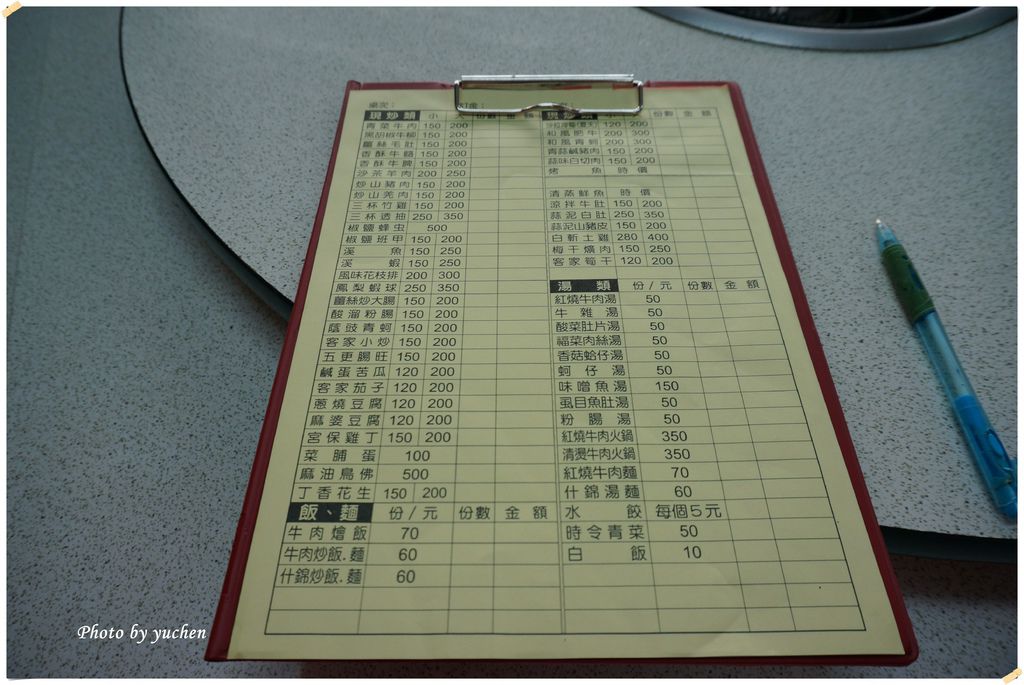 桌次：
訂金：
現炒類 小 大 份數 金額
青菜牛肉 150 200
黑胡椒牛柳 150 200
薑絲毛肚 150 200
香酥牛腸 150 200
香酥牛脾 150 200
沙茶羊肉 200 250
炒山豬肉 150 200
炒山羌肉 150 200
三杯竹雞 150 200
三杯透抽 250 350
椒鹽蜂虫 500
椒鹽班甲 150 200
溪魚 150 250
溪蝦 150 250
風味花枝排 200 300
鳳梨蝦球 250 350
薑絲炒大腸 150 200
酸溜粉腸 150 200
蔭豉青蚵 150 200
客家小炒 150 200
五更腸旺 150 200
鹹蛋苦瓜 120 200
客家茄子 120 200
蔥燒豆腐 120 200
麻婆豆腐 120 200
宮保雞丁 150 200
菜脯蛋 100
麻油鳥佛 500
丁香花生 150 200
飯、麵 份/元 份數 金額
牛肉燴飯 70
牛肉炒飯.麵 60
什錦炒飯.麵 60
現炒類 小 份數 金額
120 200
和風肥牛 200 300
和風青蚵 200 300
青蒜鹹豬肉 150 200
蒜味白切肉 150 200
烤魚 時價
清蒸鮮魚 時價
涼拌牛肚 150 200
蒜泥白肚 250 350
蒜泥山豬皮 150 200
白斬土雞 280 400
梅干爌肉 150 250
客家筍干 120 200
湯類 份/元 份數 金額
紅燒牛肉湯 50
牛雜湯 50
酸菜肚片湯 50
福菜肉絲湯 50
香菇蛤仔湯 50
蚵仔湯 50
味噌魚湯 150
虱目魚肚湯 50
粉腸湯 50
紅燒牛肉火鍋 350
清燙牛肉火鍋 350
紅燒牛肉麵 70
什錦湯麵 60
水餃 每個5元
時令青菜 50
白飯 10
Photo by yuchen